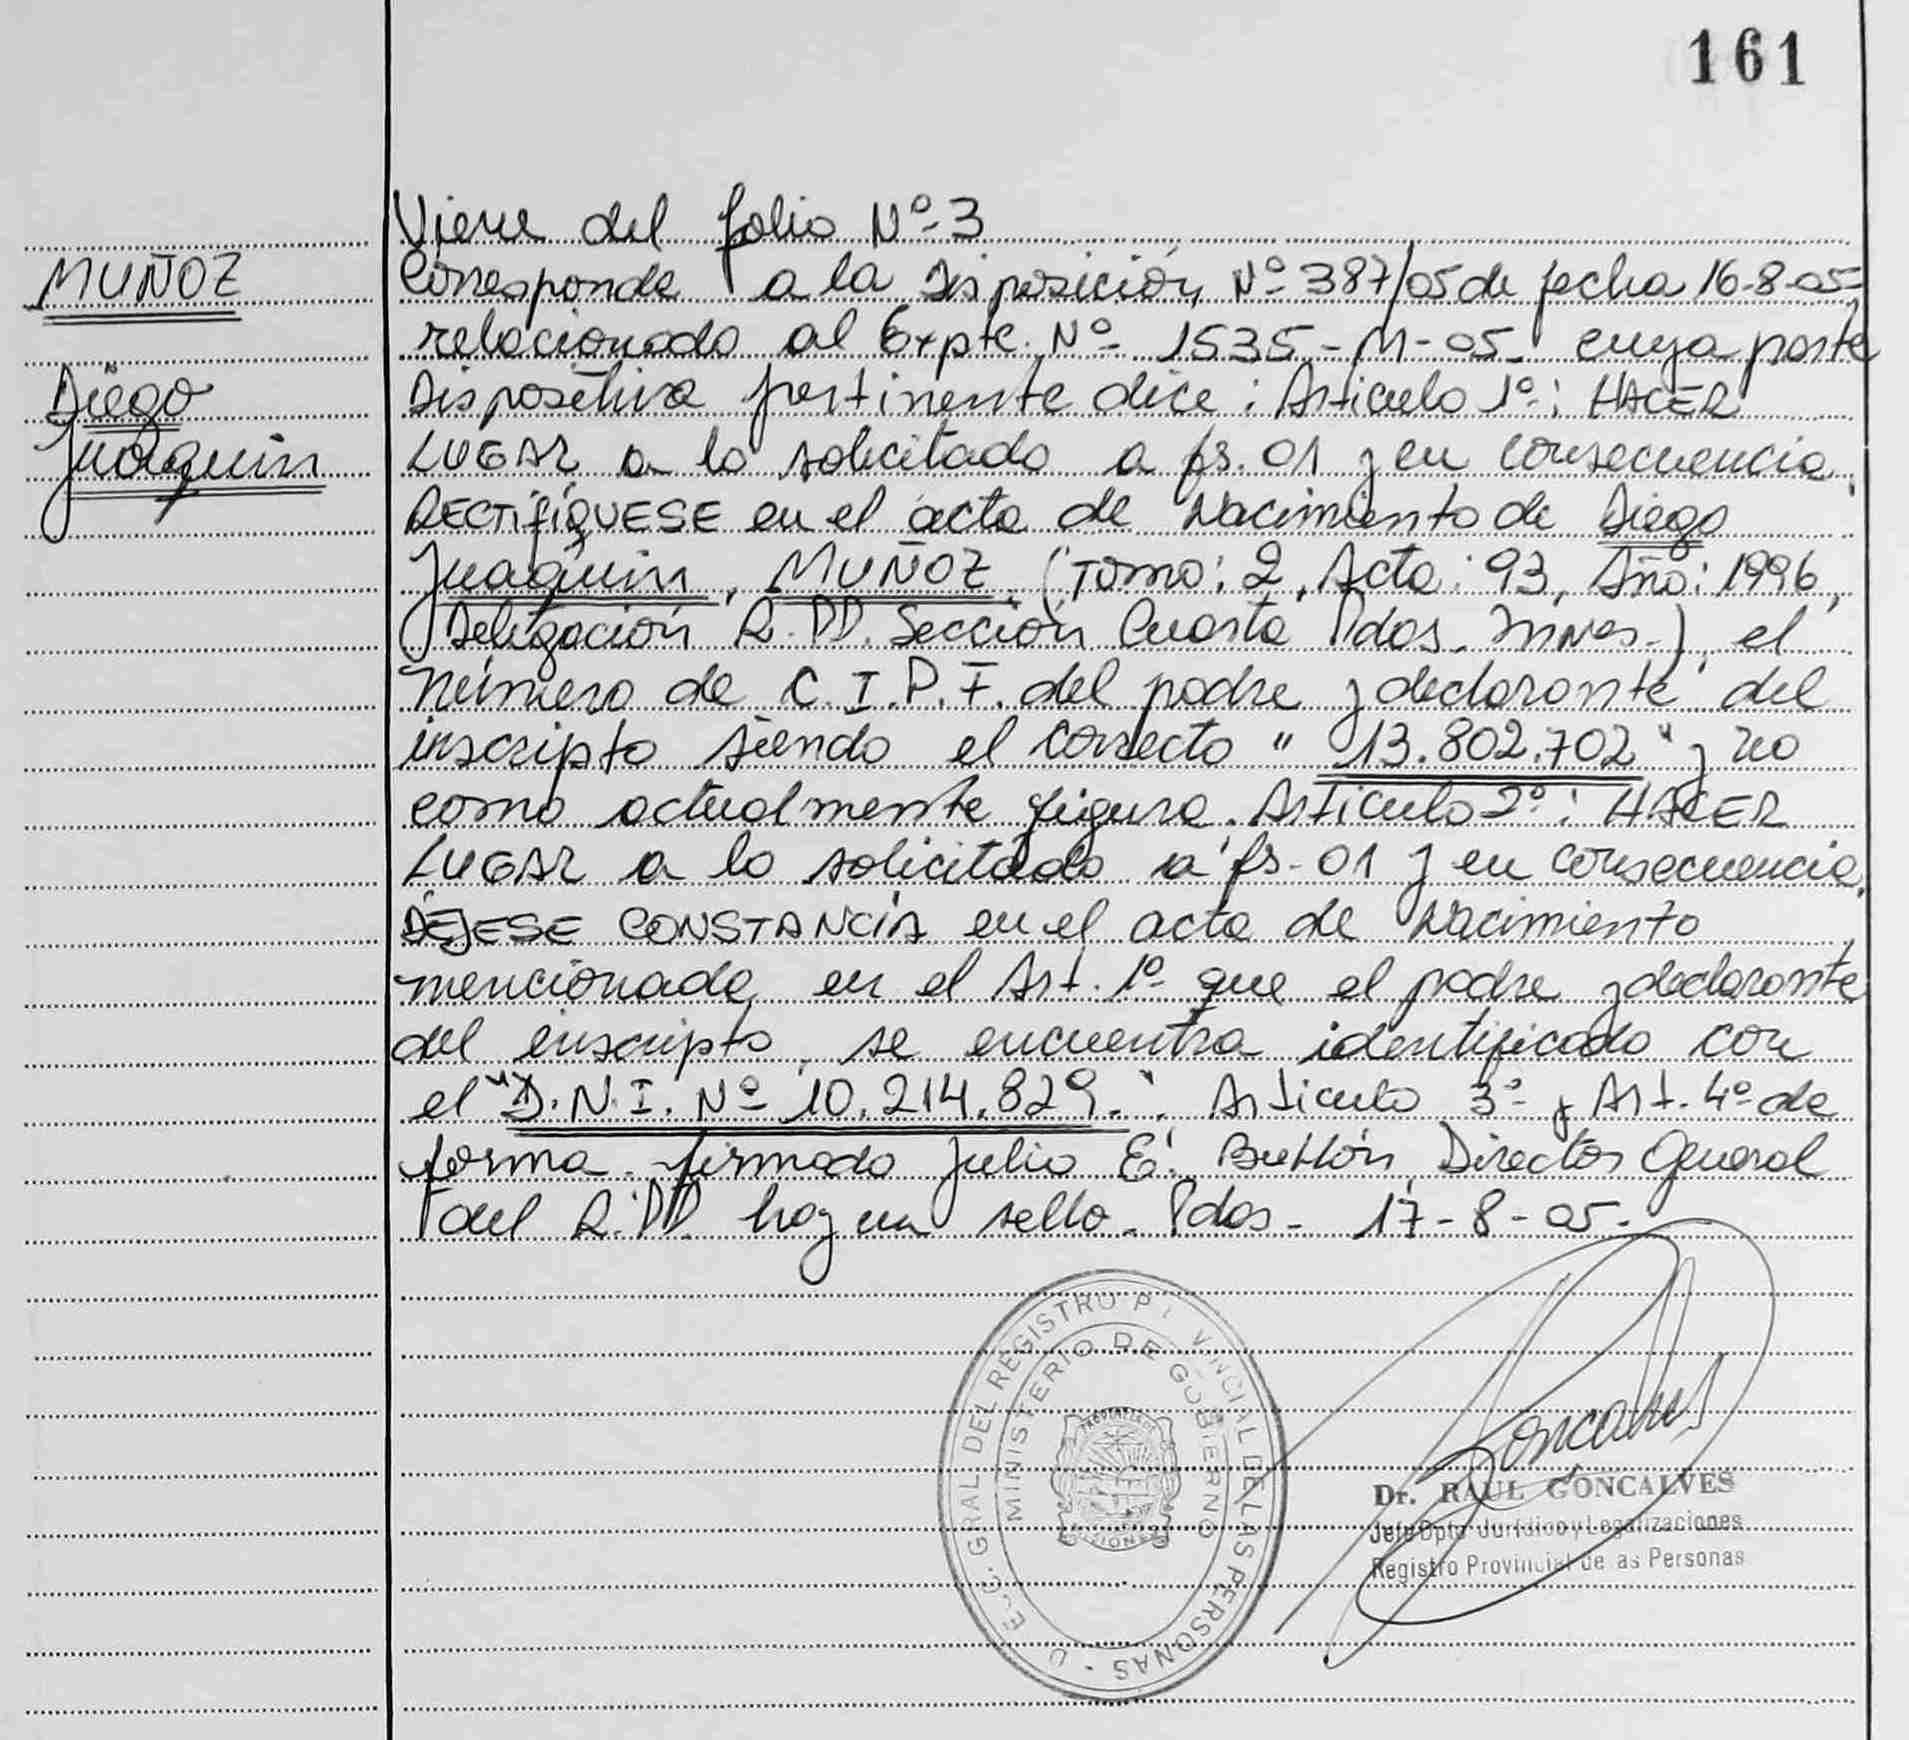 161
Viene del folio Nº 3
MUÑOZ
Corresponde a la Disposición Nº 387/05 de fecha 16-8-05-
relacionado al Expte. Nº 1535-M-05- cuya parte
Diego
Dispositiva pertinente dice: Articulo 1º: HACER
Juaquin
LUGAR a lo solicitado a fs. 01 y en consecuencia,
RECTIFÍQUESE en el acta de Nacimiento de Diego
Juaquin, MUÑOZ, (Tomo: 2, Acta: 93, Año: 1996,
Delegación R.PP. Sección Cuarta Pdas. Mnes.), el
número de C.I.P.F. del padre y declarante del
inscripto siendo el correcto "13.802.702" y no
como actualmente figura. Articulo 2º: HACER
LUGAR a lo solicitado a fs-01 y en consecuencia,
DÉJESE CONSTANCIA en el acta de Nacimiento
mencionada en el Art. 1º que el padre y declarante
del inscripto, se encuentra identificado con
el "D.N.I. Nº 10.214.829.". Articulo 3º y Art. 4º de
forma. firmado Julio E. Director General
del R.PP. hay un sello. Pdas- 17-8-05-
D E C. GRAL DEL REGISTRO P VINCIAL DE LAS PERSONAS
MINISTERIO DE GOBIERNO
Goncalves
Dr. RAUL GONCALVES
Jefe Dpto Jurídico y Legalizaciones
Registro Provincial de as Personas